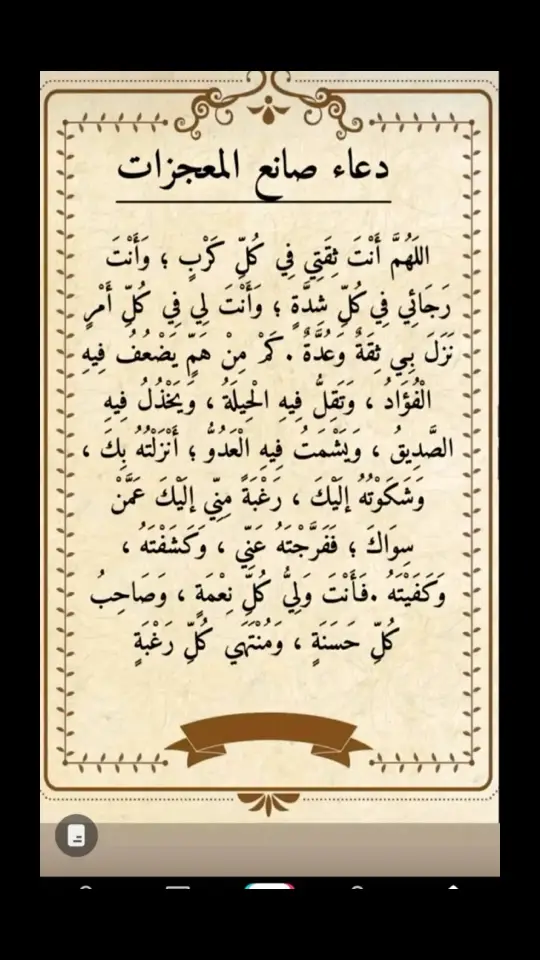 دعاء صانع المعجزات
اللَهُمَّ أَنْتَ ثِقَتِي فِي كُلِّ كَرْبٍ ؛ وَأَنْتَ
رَجَائِي فِي كُلِّ شِدَّةٍ ؛ وَأَنْتَ لِي فِي كُلِّ أَمْرٍ
نَزَلَ بِي ثِقَةٌ وَعُدَّةٌ .كَمْ مِنْ هَمٍّ يَضْعُفُ فِيهِ
الْفُؤَادُ ، وَتَقِلُّ فِيهِ الْحِيلَةُ ، وَيَخْذُلُ فِيهِ
الصَّدِيقُ ، وَيَشْمَتُ فِيهِ الْعَدُوُّ ؛ أَنْزَلْتُهُ بِكَ ،
وَشَكَوْتُهُ إلَيْكَ ، رَغْبَةً مِنِّي إلَيْكَ عَمَّنْ
سِوَاكَ ؛ فَفَرَّجْتَهُ عَنِّي ، وَكَشَفْتَهُ ،
وَكَفَيْتَهُ .فَأَنْتَ وَلِيُّ كُلِّ نِعْمَةٍ ، وَصَاحِبُ
كُلِّ حَسَنَةٍ ، وَمُنْتَهَي كُلِّ رَغْبَةٍ